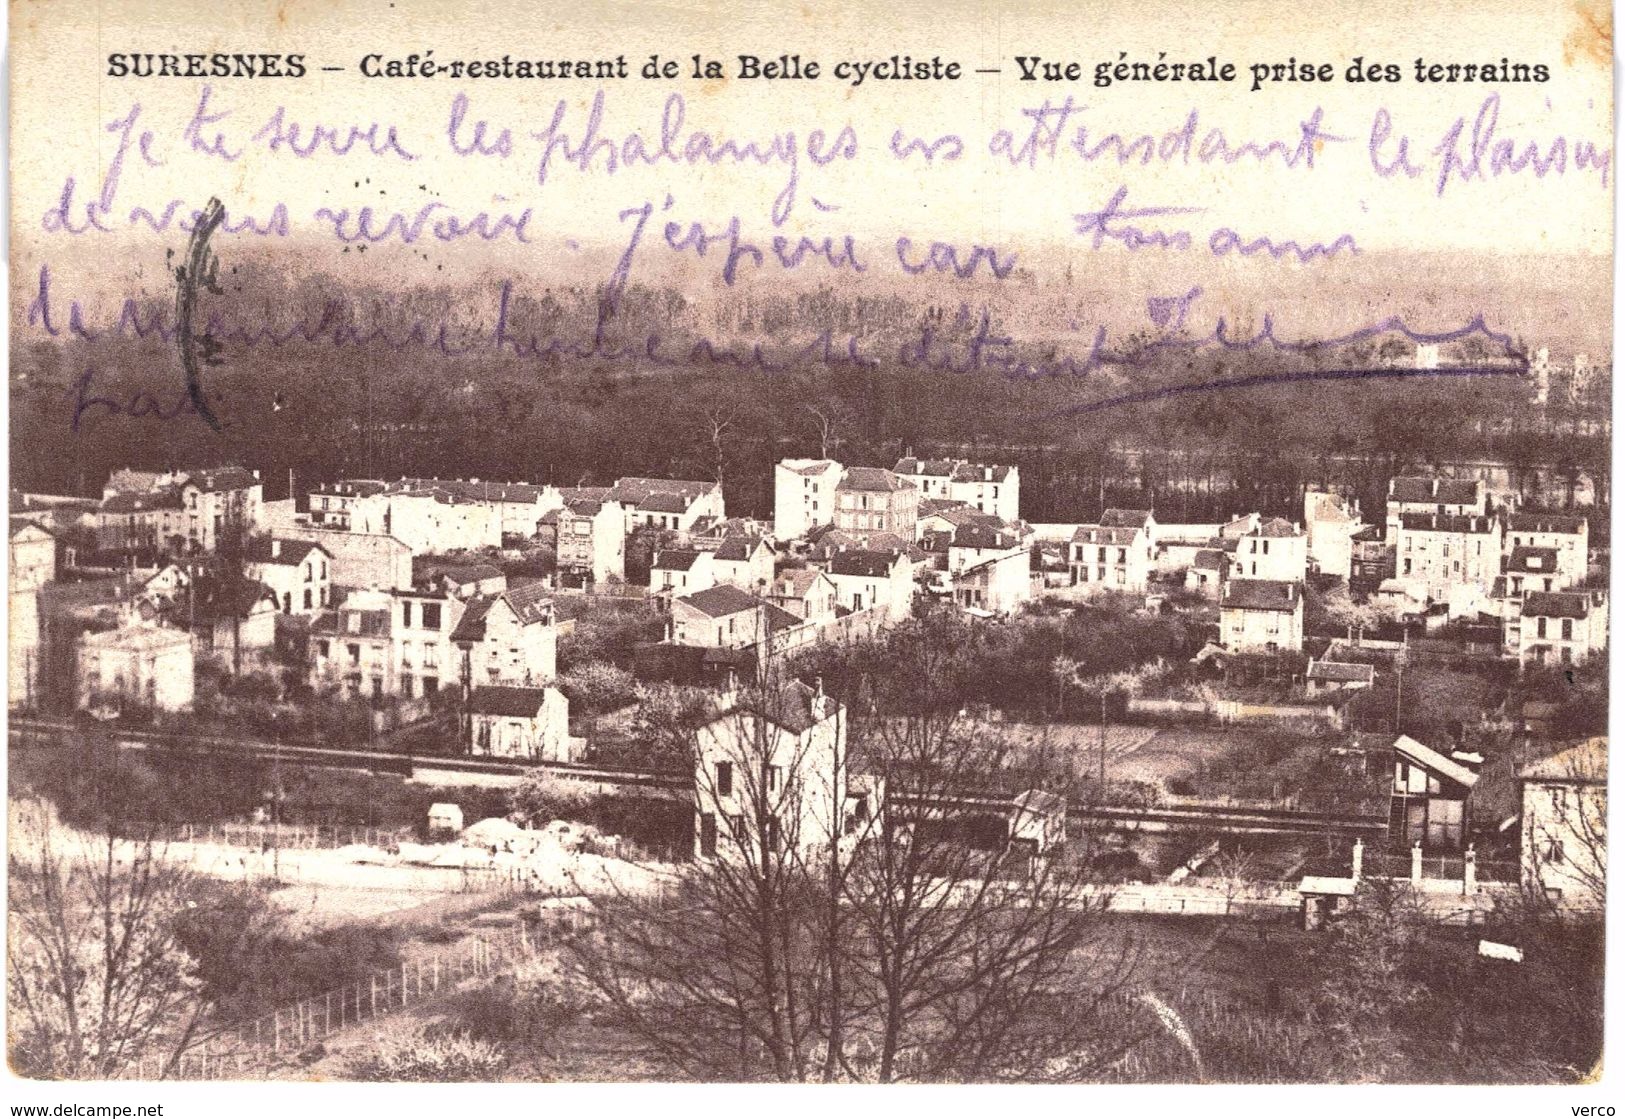 SURESNES – Café-restaurant de la Belle cycliste – Vue générale prise des terrains
Je te serre les phalanges en attendant le plaisir
de vous revoir. J'espère car ton ami
de mauvaise herbe ne se détruit
pas.
www.delcampe.net
verco